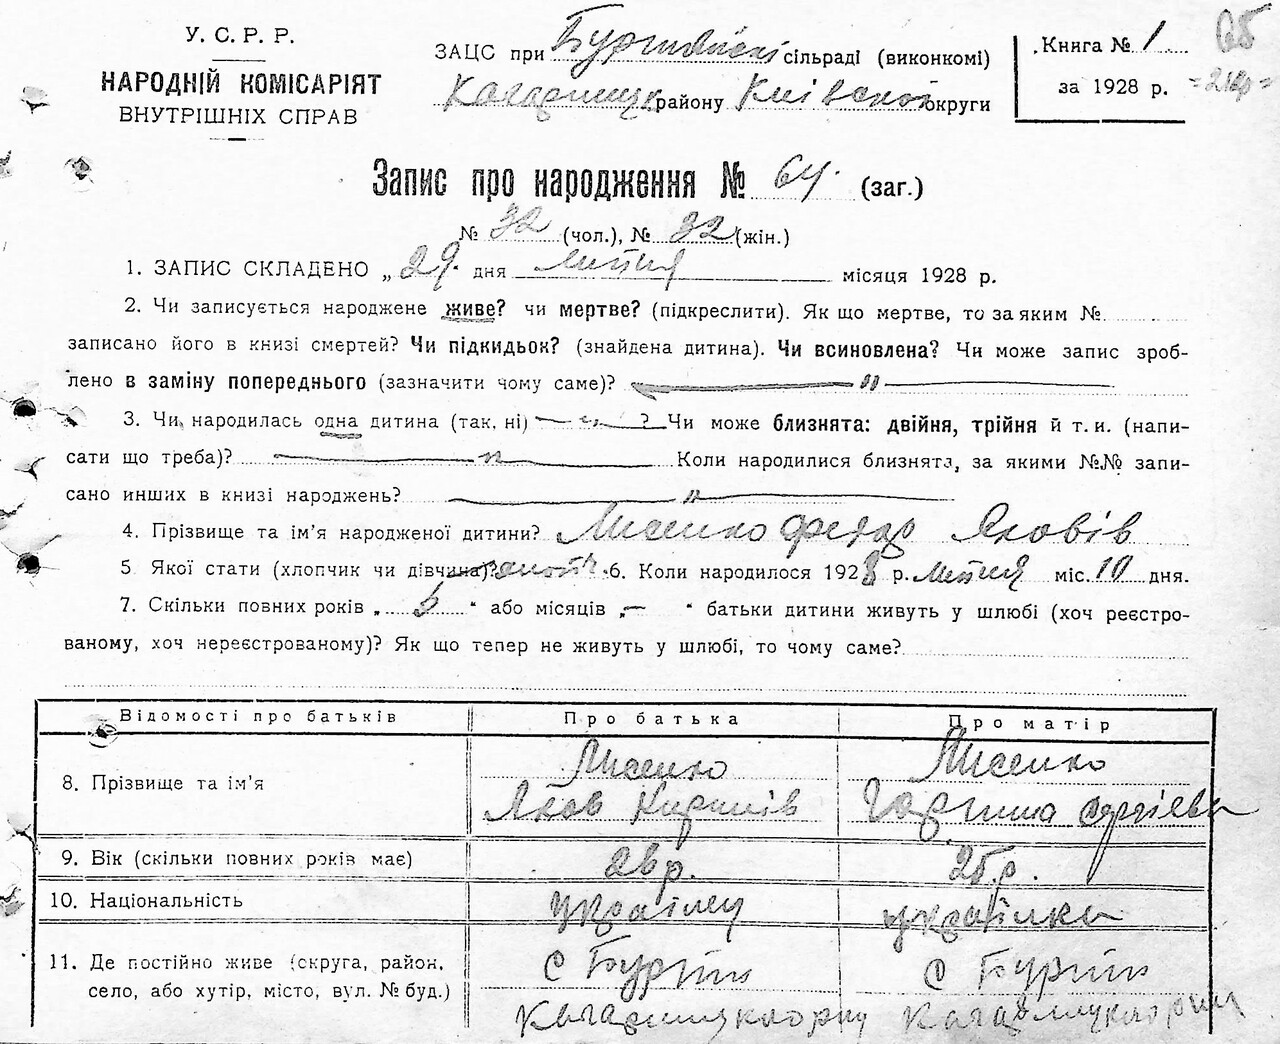 У. С. Р. Р.
НАРОДНІЙ КОМІСАРІЯТ
ВНУТРІШНІХ СПРАВ
ЗАЦС при сільраді (виконкомі)
району Київської округи
Книга № 1
за 1928 р.
Запис про народження № 64. (заг.)
№ 32 (чол.), № 32 (жін.)
1. ЗАПИС СКЛАДЕНО „29. дня липня місяця 1928 р.
2. Чи записується народжене живе? чи мертве? (підкреслити). Як що мертве, то за яким №
записано його в книзі смертей? Чи підкидьок? (знайдена дитина). Чи всиновлена? Чи може запис зроб-
лено в заміну попереднього (зазначити чому саме)? — " —
3. Чи народилась одна дитина (так, ні) — " — ? Чи може близнята: двійня, трійня й т. и. (напи-
сати що треба)? — " — Коли народилися близнята, за якими №№ запи-
сано инших в книзі народжень? — " —
4. Прізвище та ім'я народженої дитини? Лисенко Федір Яковів
5 Якої стати (хлопчик чи дівчина)? 6. Коли народилося 1928 р. липня міс. 10 дня.
7. Скільки повних років „ 5 " або місяців „ — " батьки дитини живуть у шлюбі (хоч реєстро-
ваному, хоч нереєстрованому)? Як що тепер не живуть у шлюбі, то чому саме?
Відомості про батьків Про батька Про матір
8. Прізвище та ім'я Лисенко Яков Кирилів Лисенко Горпина Сергієва
9. Вік (скільки повних років має) 26 р. 25 р.
10. Національність українец українка
11. Де постійно живе (округа, район, с Буртін с Буртін
село, або хутір, місто, вул. № буд.) Кагарлицького рну Кагарлицького рну